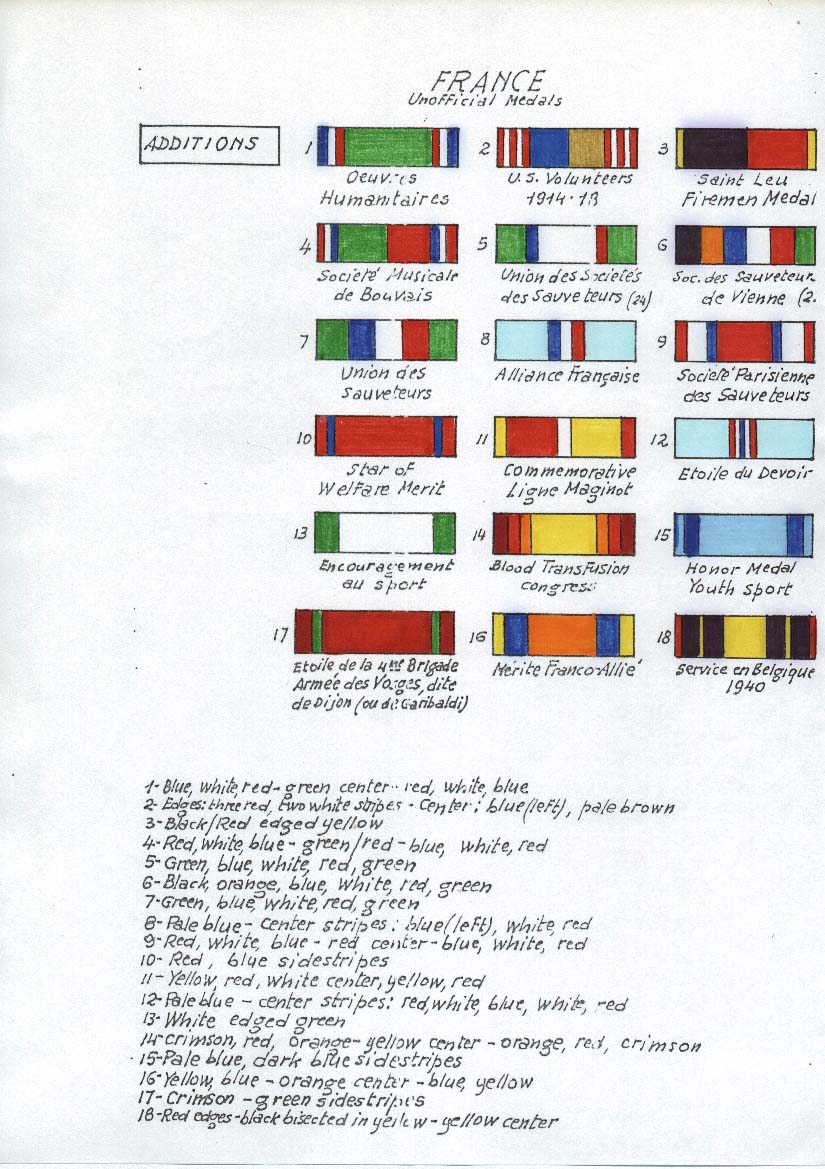 FRANCE
Unofficial Medals
ADDITIONS
1
2
3
Oeuvres
Humanitaires
U.S. Volunteers
1914-18
Saint Leu
Firemen Medal
4
5
6
Societé Musicale
de Bouvais
Union des Societés
des Sauveteurs (24)
Soc. des Sauveteur
de Vienne (2.
7
8
9
Union des
Sauveteurs
Alliance Française
Societé Parisienne
des Sauveteurs
10
11
12
Star of
Welfare Merit
Commemorative
Ligne Maginot
Etoile du Devoir
13
14
15
Encouragement
au sport
Blood Transfusion
congress
Honor Medal
Youth sport
17
16
18
Etoile de la 4me Brigade
Armée des Vosges, dite
de Dijon (ou de Garibaldi)
Mérite Franco-Allié
Service en Belgique
1940
1- Blue, white, red - green center - red, white, blue
2- Edges: three red, two white stripes - Center: blue (left), pale brown
3- Black/Red edged yellow
4- Red, white, blue - green/red - blue, white, red
5- Green, blue, white, red, green
6- Black, orange, blue, white, red, green
7- Green, blue, white, red, green
8- Pale blue - center stripes: blue (left), white, red
9- Red, white, blue - red center - blue, white, red
10- Red, blue sidestripes
11- Yellow, red, white center, yellow, red
12- Pale blue - center stripes: red, white, blue, white, red
13- White edged green
14- Crimson, red, orange - yellow center - orange, red, crimson
15- Pale blue, dark blue sidestripes
16- Yellow, blue - orange center - blue, yellow
17- Crimson - green sidestripes
18- Red edges - black bisected in yellow - yellow center